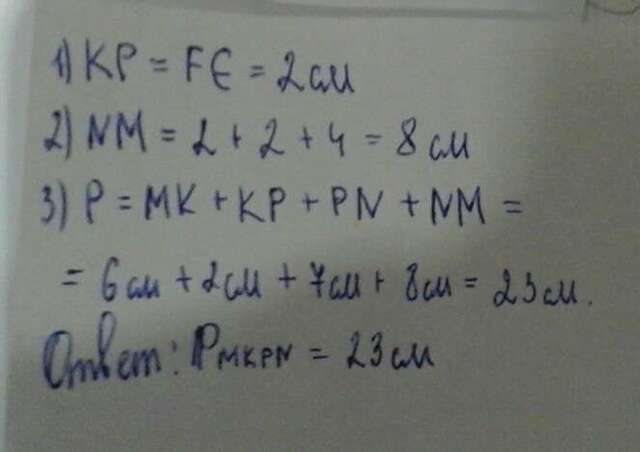 1) KP = FE = 2 см
2) NM = 2 + 2 + 4 = 8 см
3) P = MK + KP + PN + NM =
= 6 см + 2 см + 7 см + 8 см = 23 см.
Ответ: PMKPN = 23 см